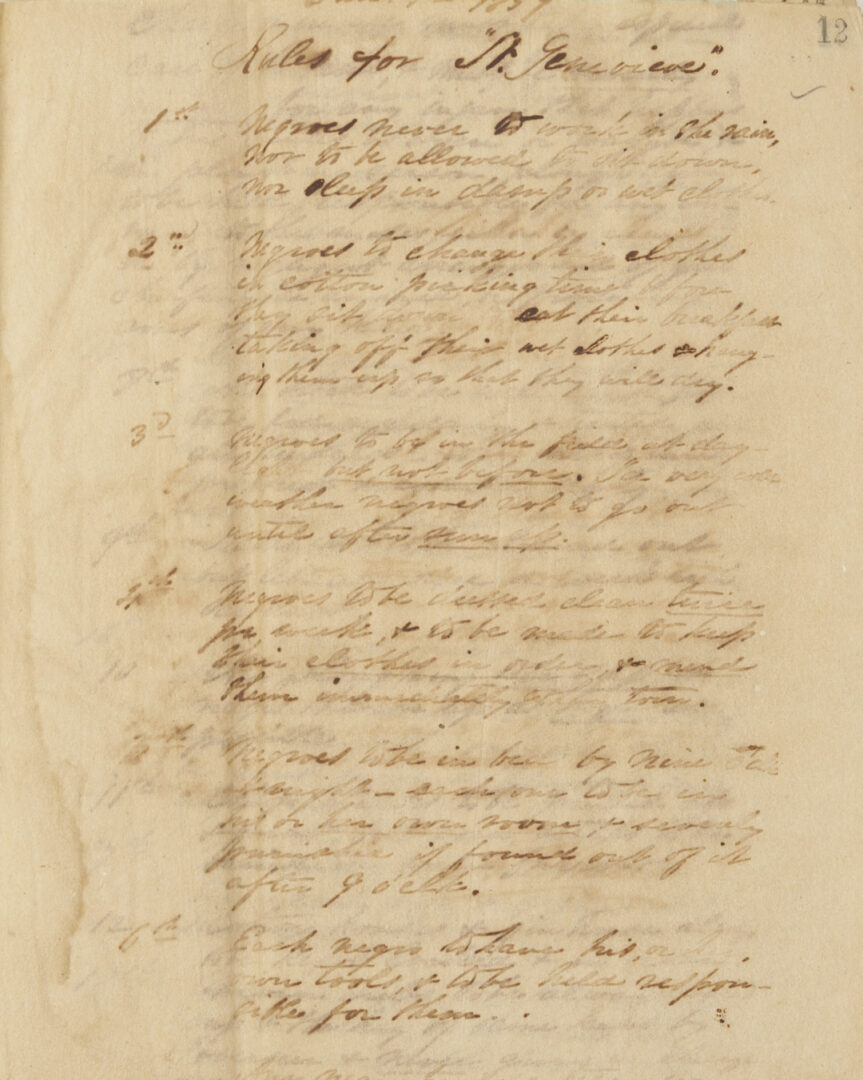 1859
12
Rules for "St. Genevieve".
1st Negroes never to work in the rain,
nor to be allowed to sit down,
nor sleep in damp or wet
2nd Negroes to change clothes
in cotton picking time before
they sit down eat their breakfast
taking off their wet clothes & hang-
ing them up so that they will dry.
3d Negroes to be in the field at day-
but not before. In very
weather negroes not to go out
until after sun up.
4th Negroes to be dressed clean twice
per week, & to be made to keep
their clothes in order, & mend
them immediately when torn.
Negroes to be in bed by nine
at night – each one to be in
his or her own room & severely
punished if found out of it
after 9 o'clk.
6th Each negro to have his, or
own tools, & to be held respon-
sible for them.